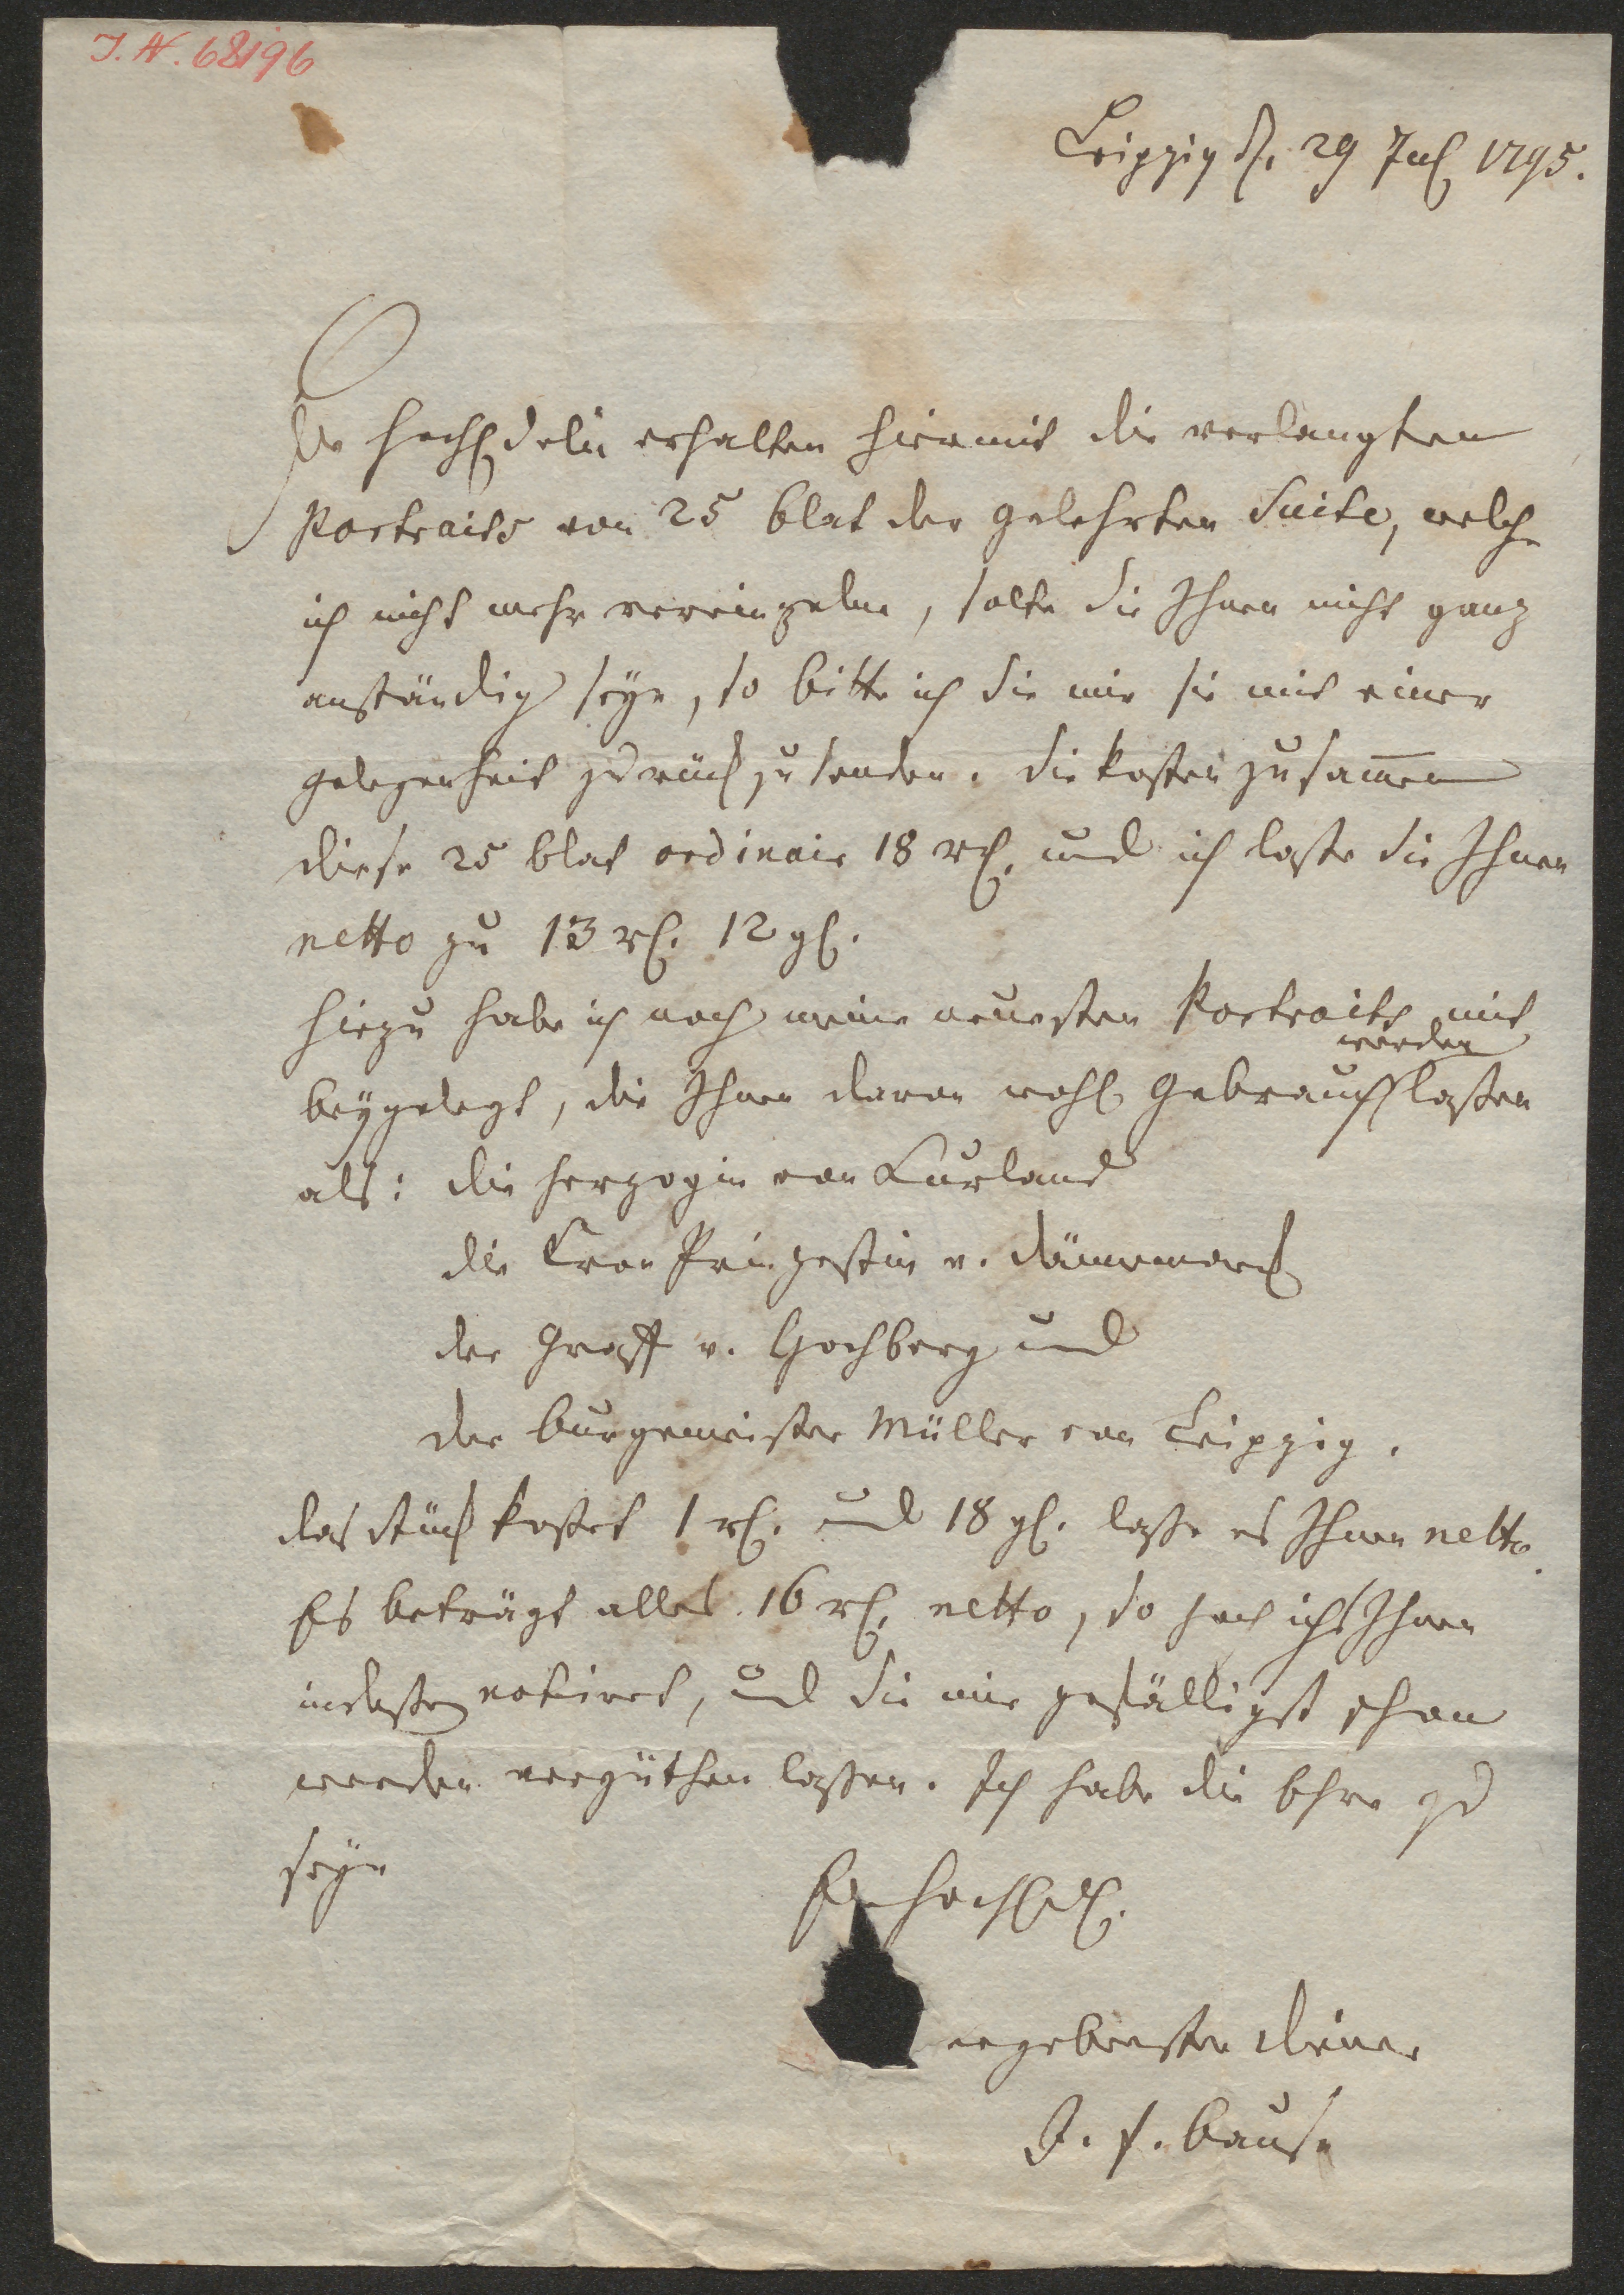 J. N. 68196
Leipzig d. 29 Jul 1795.
Ew HochEdeln erhalten hiermit die verlangten
Portraits von 25 blat der gelehrten Suite, welche
ich nicht mehr vereinzelne, solte sie Ihnen nicht ganz
anständig seyn, so bitte ich Sie mir sie mit einer
gelegenheit zurück zu senden. Sie kosten zusamen
diese 25 blat ordinair 18 rl. und ich lasse sie Ihnen
netto zu 13 rl. 12 gl.
hiezu habe ich noch meine neuesten Portraits mit
werden
beygelegt, die Ihnen davon wohl Gebrauch lassen
als: die Herzogin von Curland
die Cron Prinzessin v. Dännemark
der Graff v. Hochberg und
der burgemeister Müller von Leipzig.
das stück kostet 1 rl. und 18 gl. lasse es Ihnen netto.
Es beträgt alles 16 rl. netto, so hab ichs Ihnen
indessen notiret, und Sie mir gefälligst schon
werden vergüthen lassen. Ich habe die Ehre zu
seyn
Ew HochEdl.
ergebenster diener
J. F. Bause